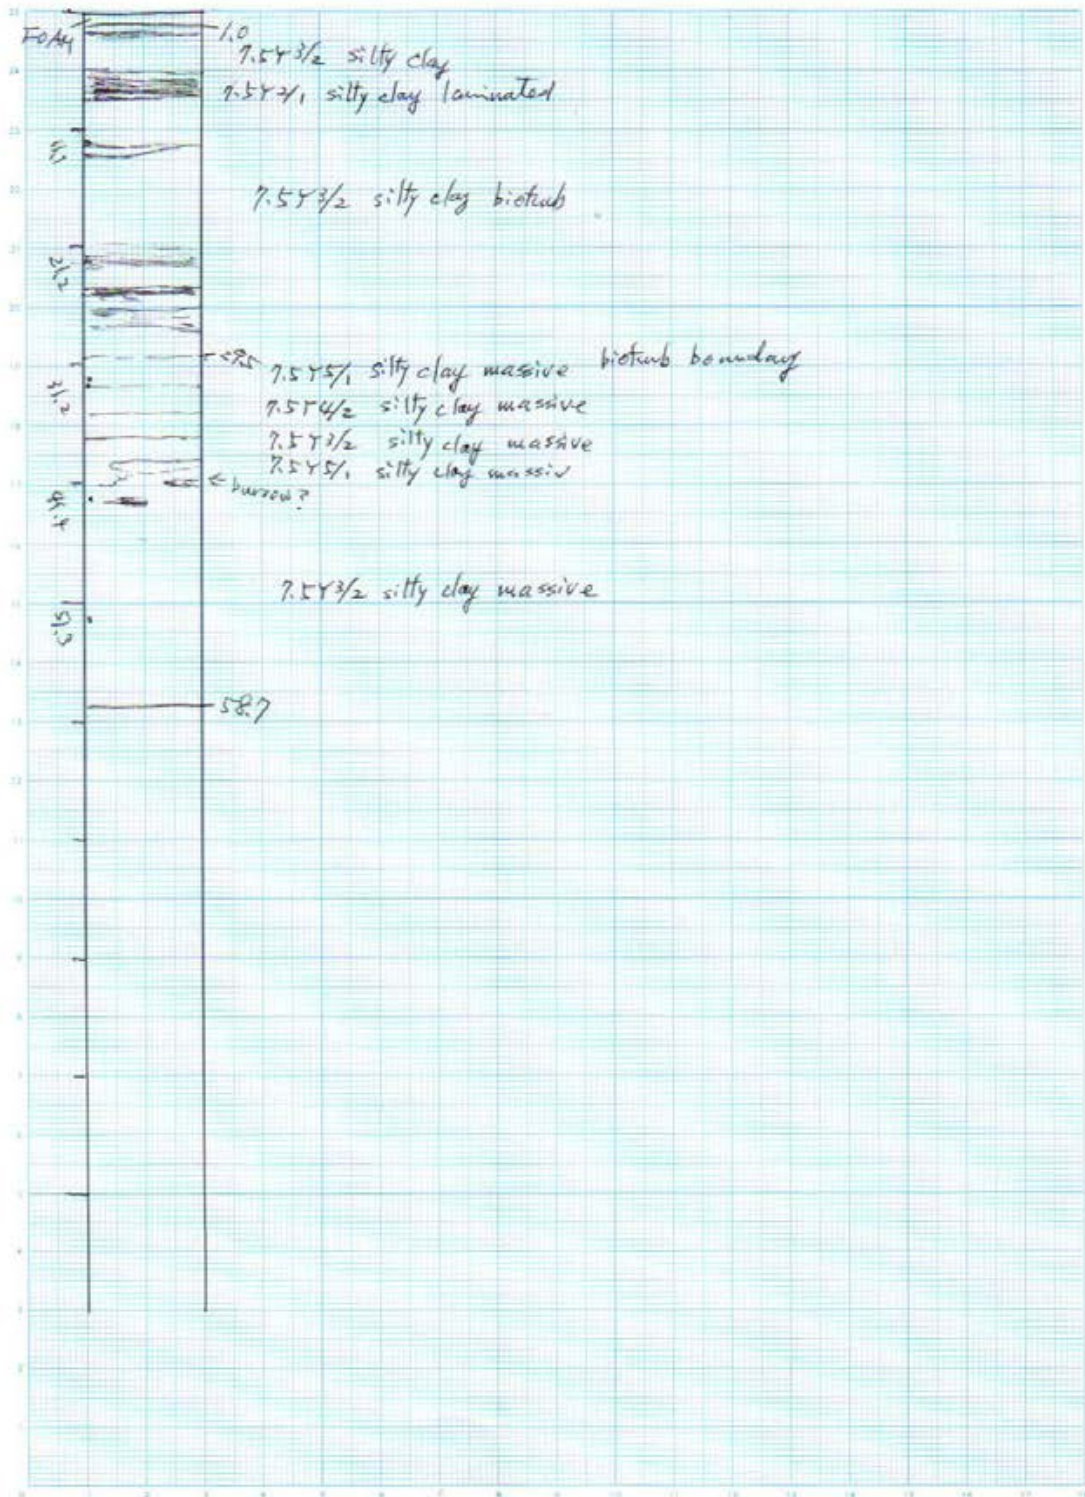 FOAM
1.0
7.5Y3/2 silty clay
7.5Y2/1 silty clay laminated
7.5Y3/2 silty clay bioturb
21.2
29.5
7.5Y5/1 silty clay massive bioturb boundary
31.2
7.5Y4/2 silty clay massive
7.5Y3/2 silty clay massive
7.5Y5/1 silty clay massiv
← burrow?
7.5Y3/2 silty clay massive
51.3
58.7